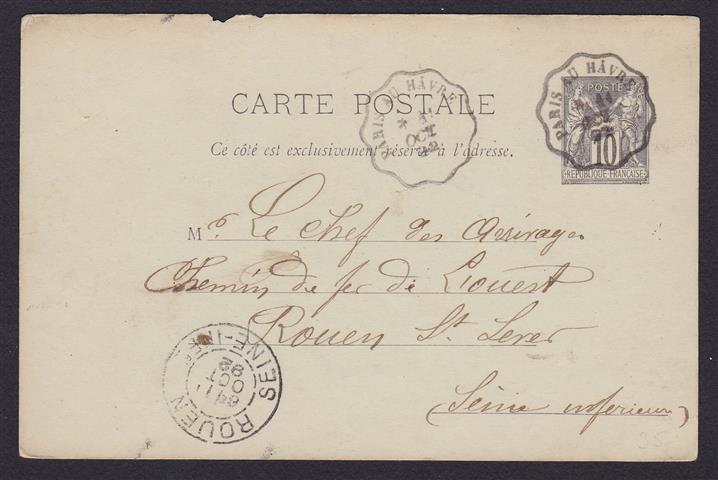 CARTE POSTALE
Ce côté est exclusivement réservé à l'adresse.
PARIS AU HÂVRE
OCT
PARIS AU HÂVRE
OCT
POSTE
10
REPUBLIQUE FRANÇAISE
Mr Le Chef des Arrivages
Chemin de fer de L'ouest
Rouen St Sever
(Seine inferieure)
ROUEN
OCT
SEINE-INFRE